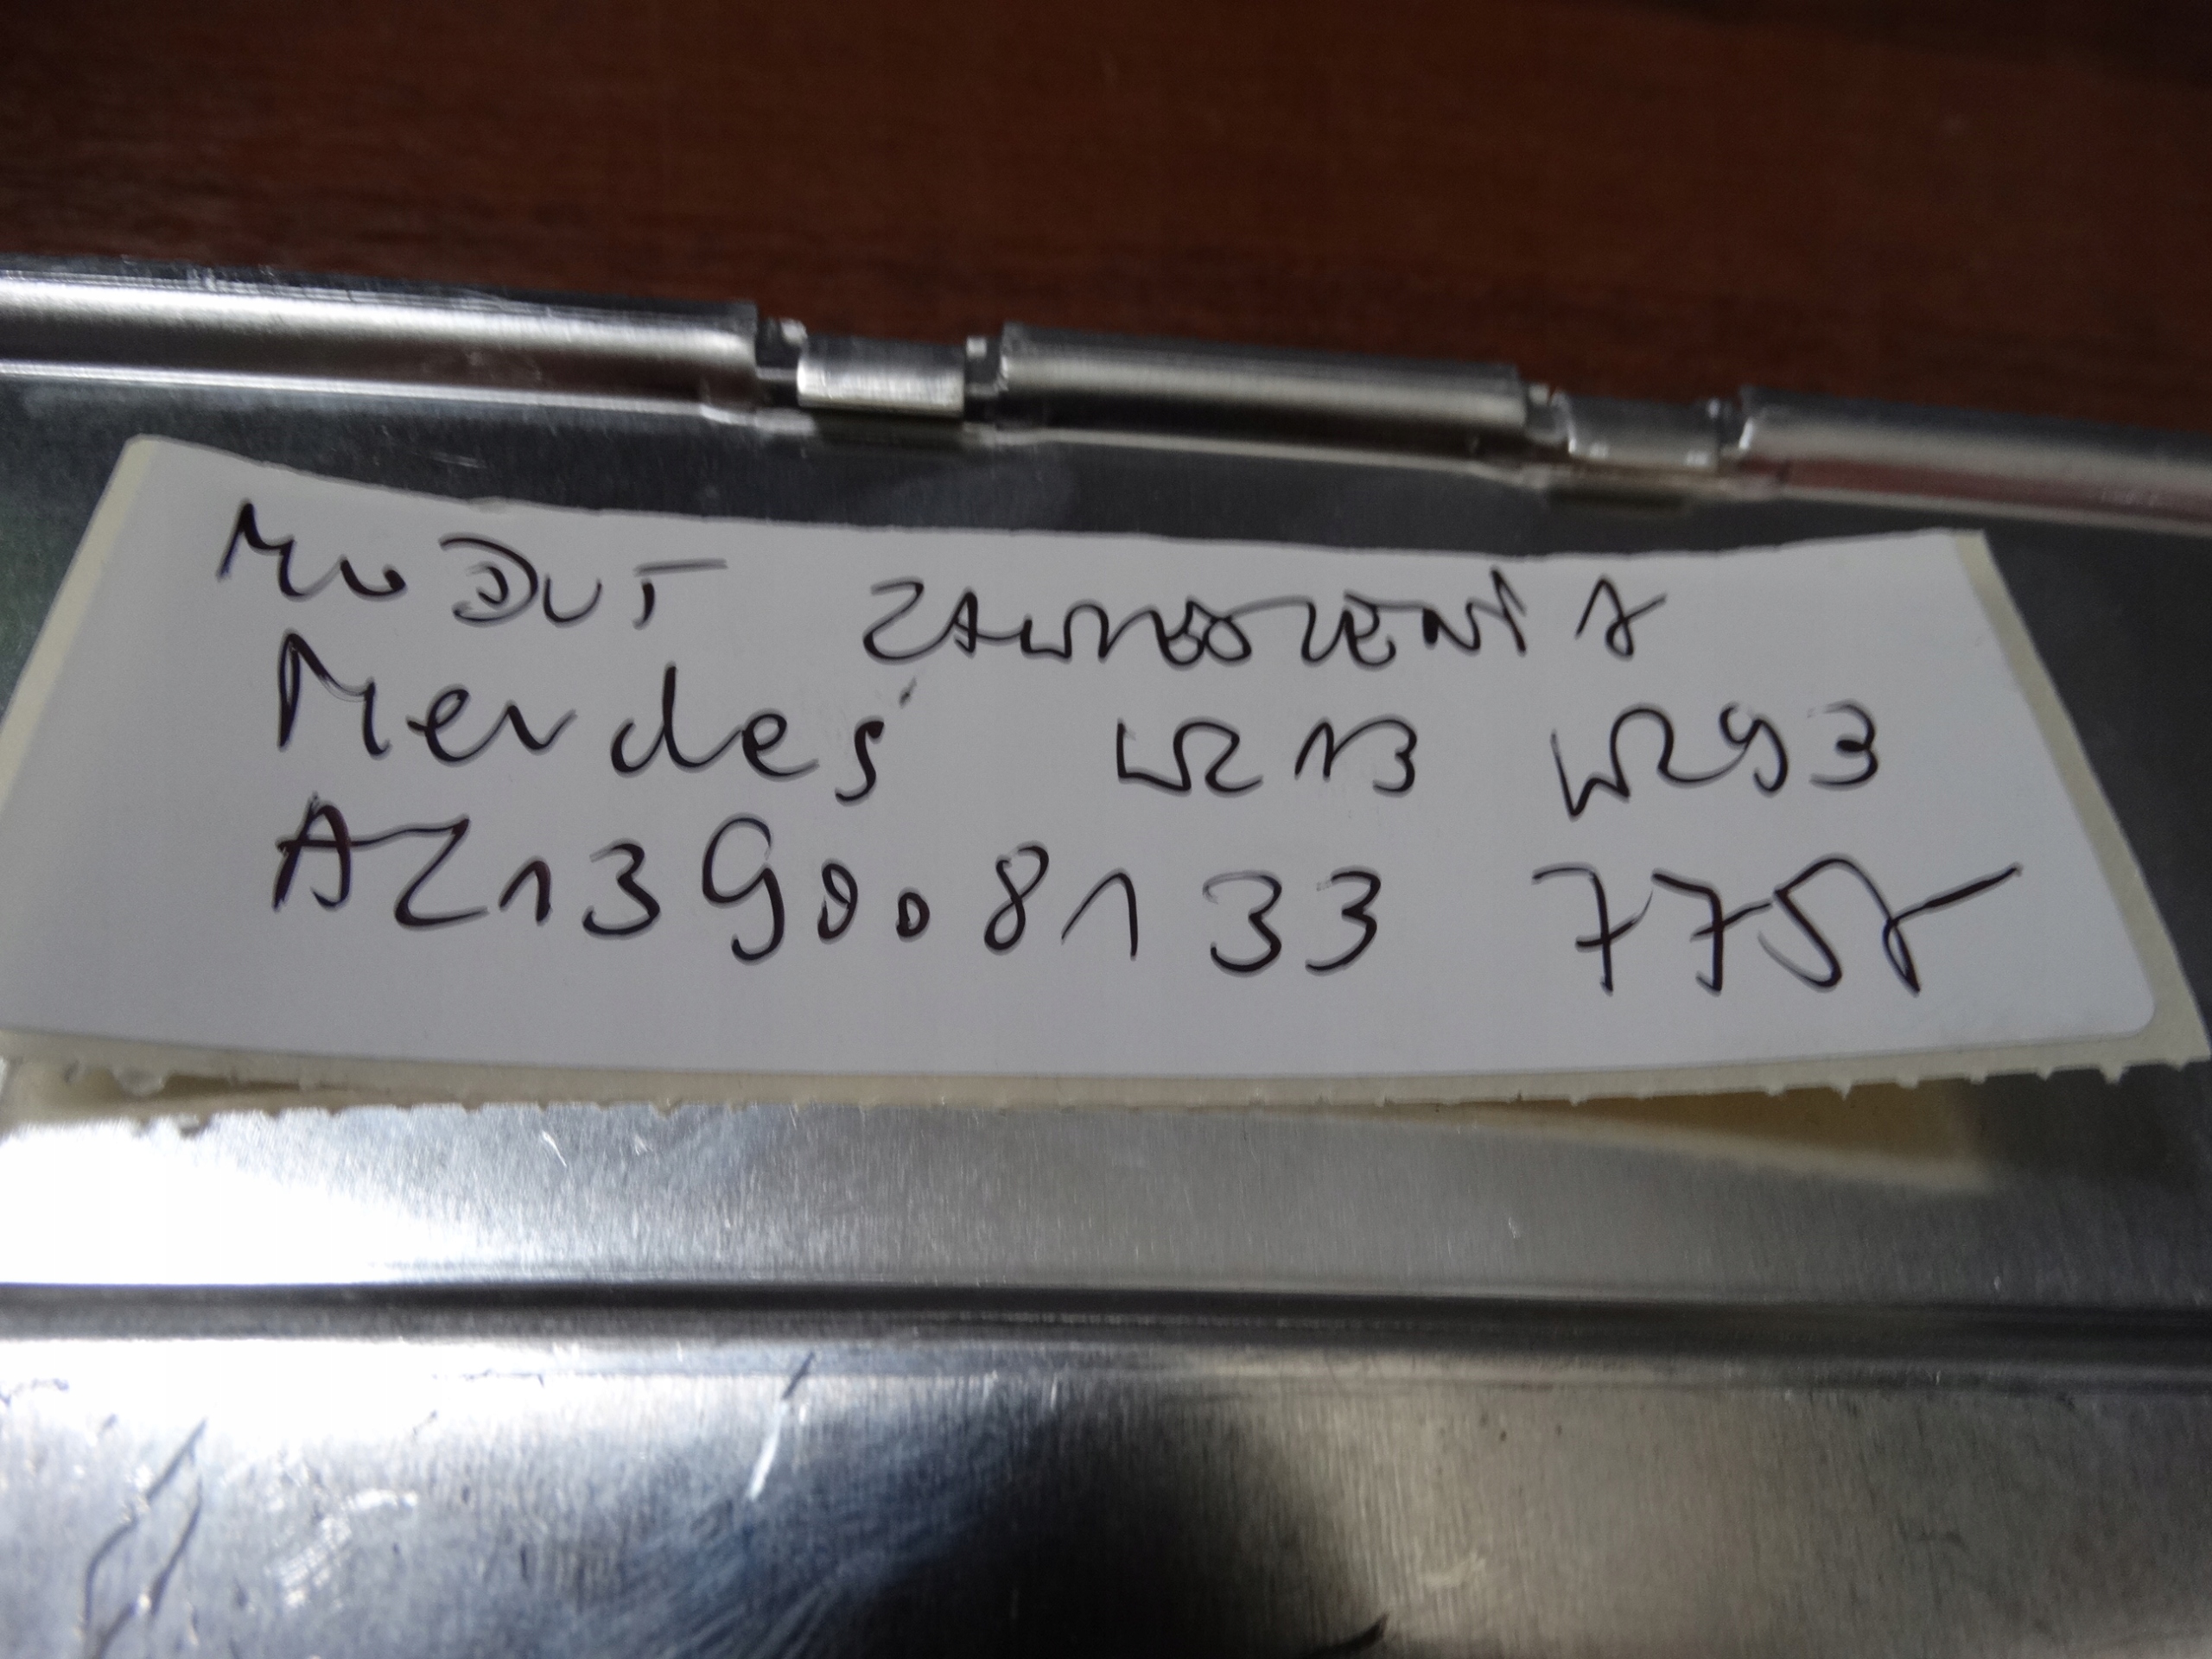 MODUŁ ZAWIESZENIA
Mercedes W213 W293
A2139008133 775r